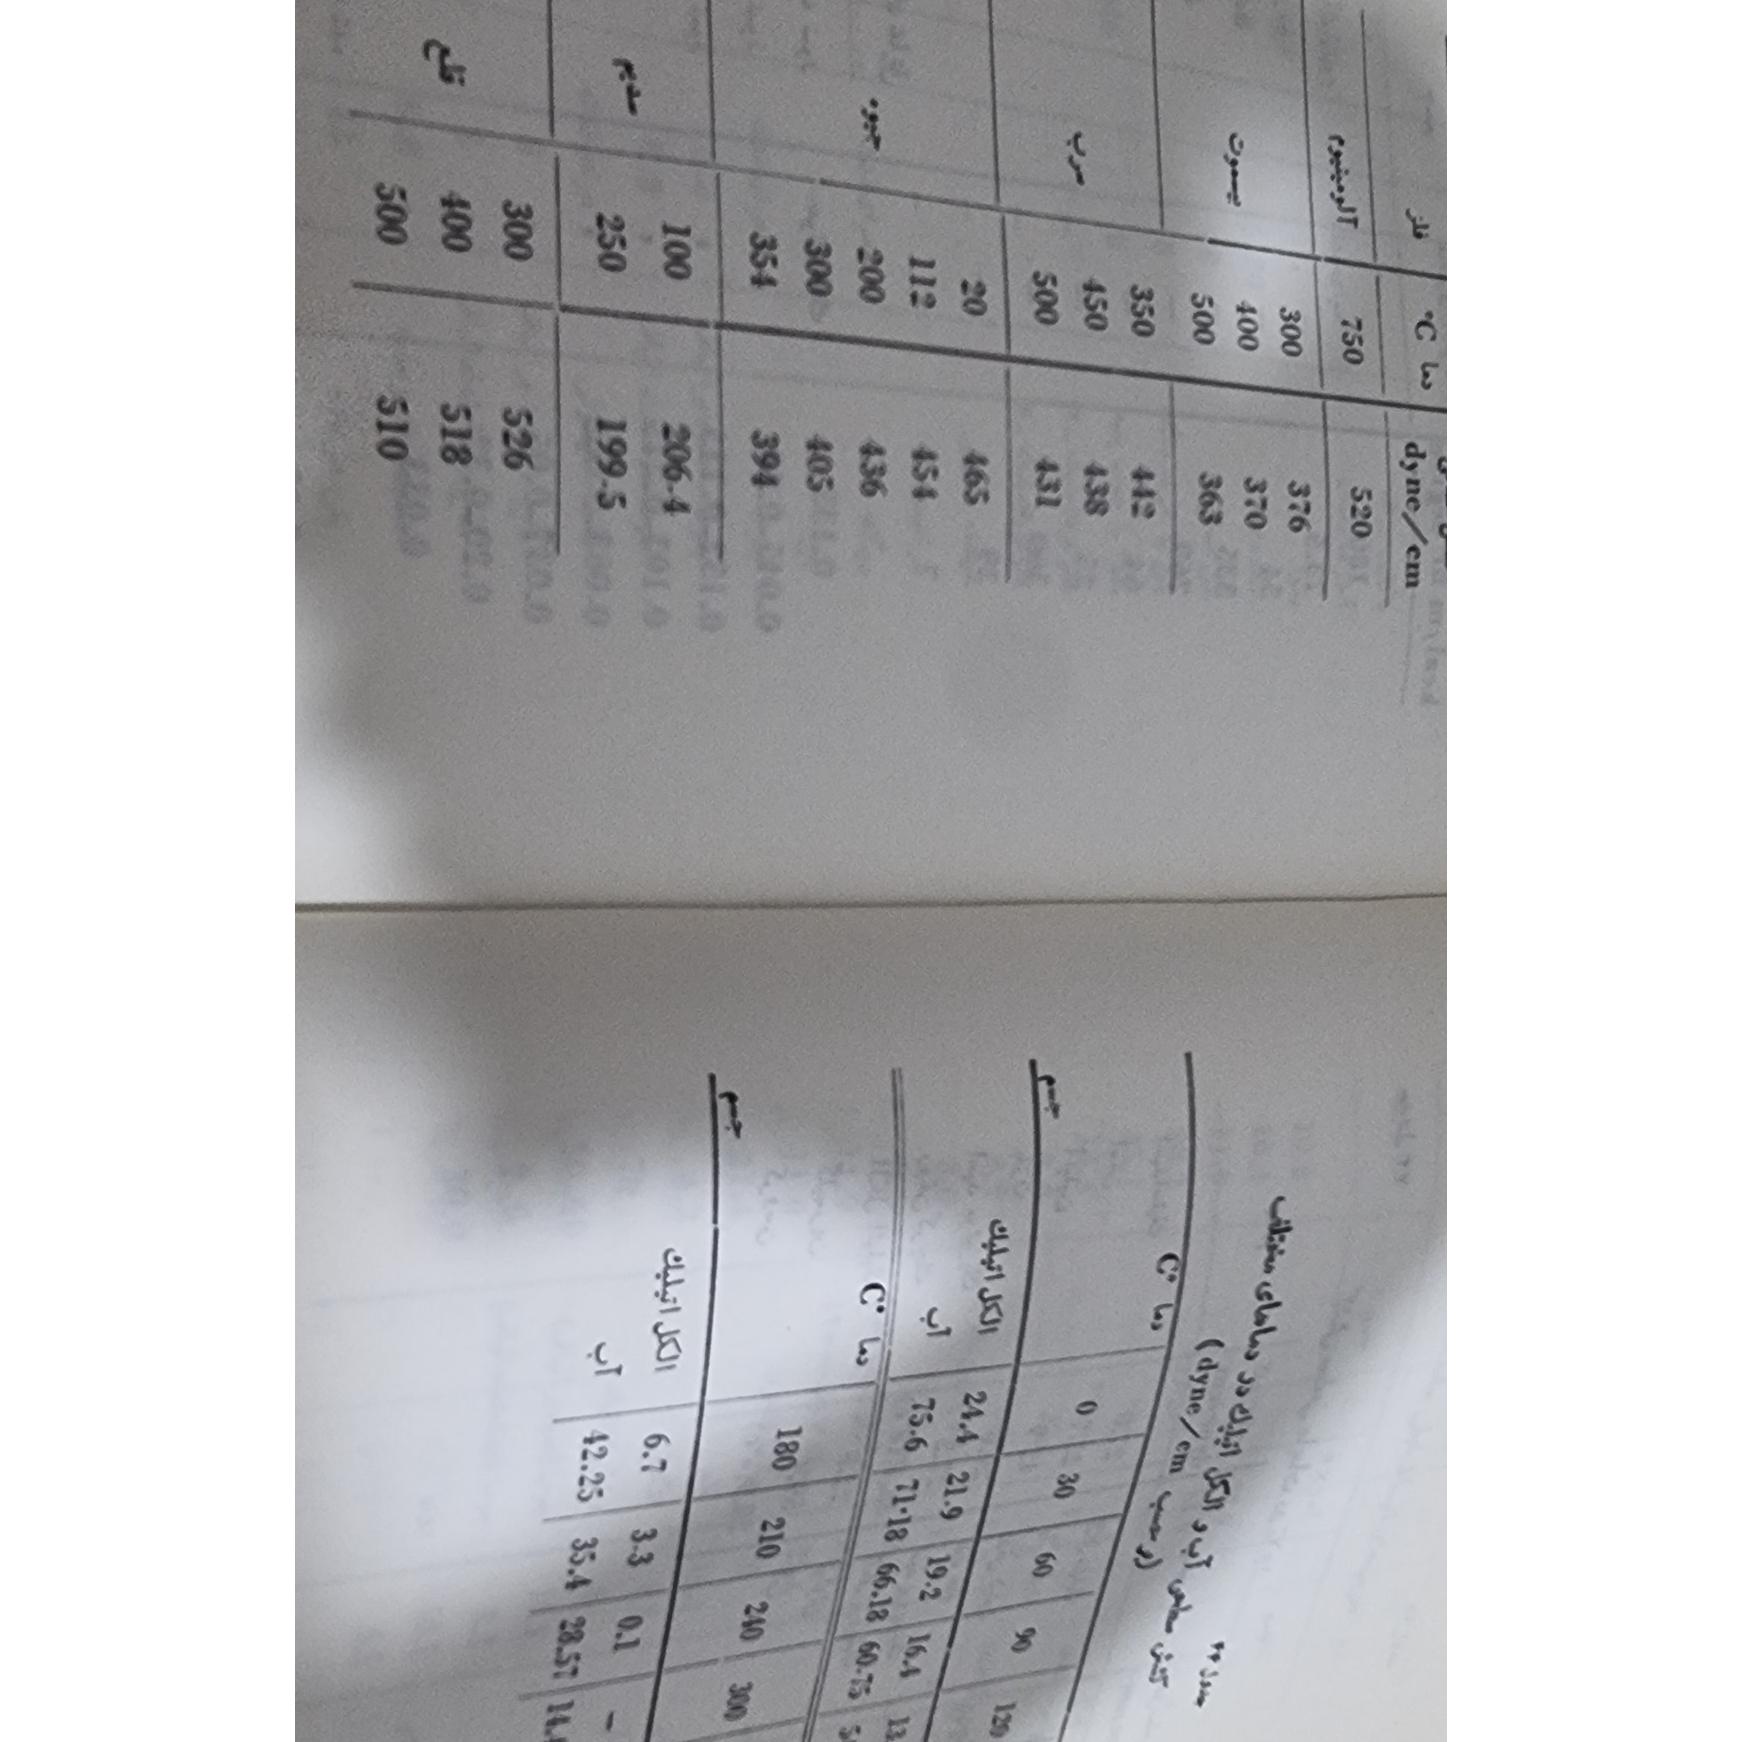 فلز دما °C dyne/cm
آلومینیوم 750 520
بیسموت 300 376
400 370
500 363
سرب 350 442
450 438
500 431
جیوه 20 465
112 454
200 436
300 405
354 394
سدیم 100 206.4
250 199.5
قلع 300 526
400 518
500 510
کشش سطحی آب و الکل اتیلیک در دماهای مختلف
(بر حسب dyne/cm)
دما C° 0 30 60 90 120
جسم
الکل اتیلیک 24.4 21.9 19.2 16.4
آب 75.6 71.18 66.18 60.75
دما C° 180 210 240 300
جسم
الکل اتیلیک 6.7 3.3 0.1 –
آب 42.25 35.4 28.57